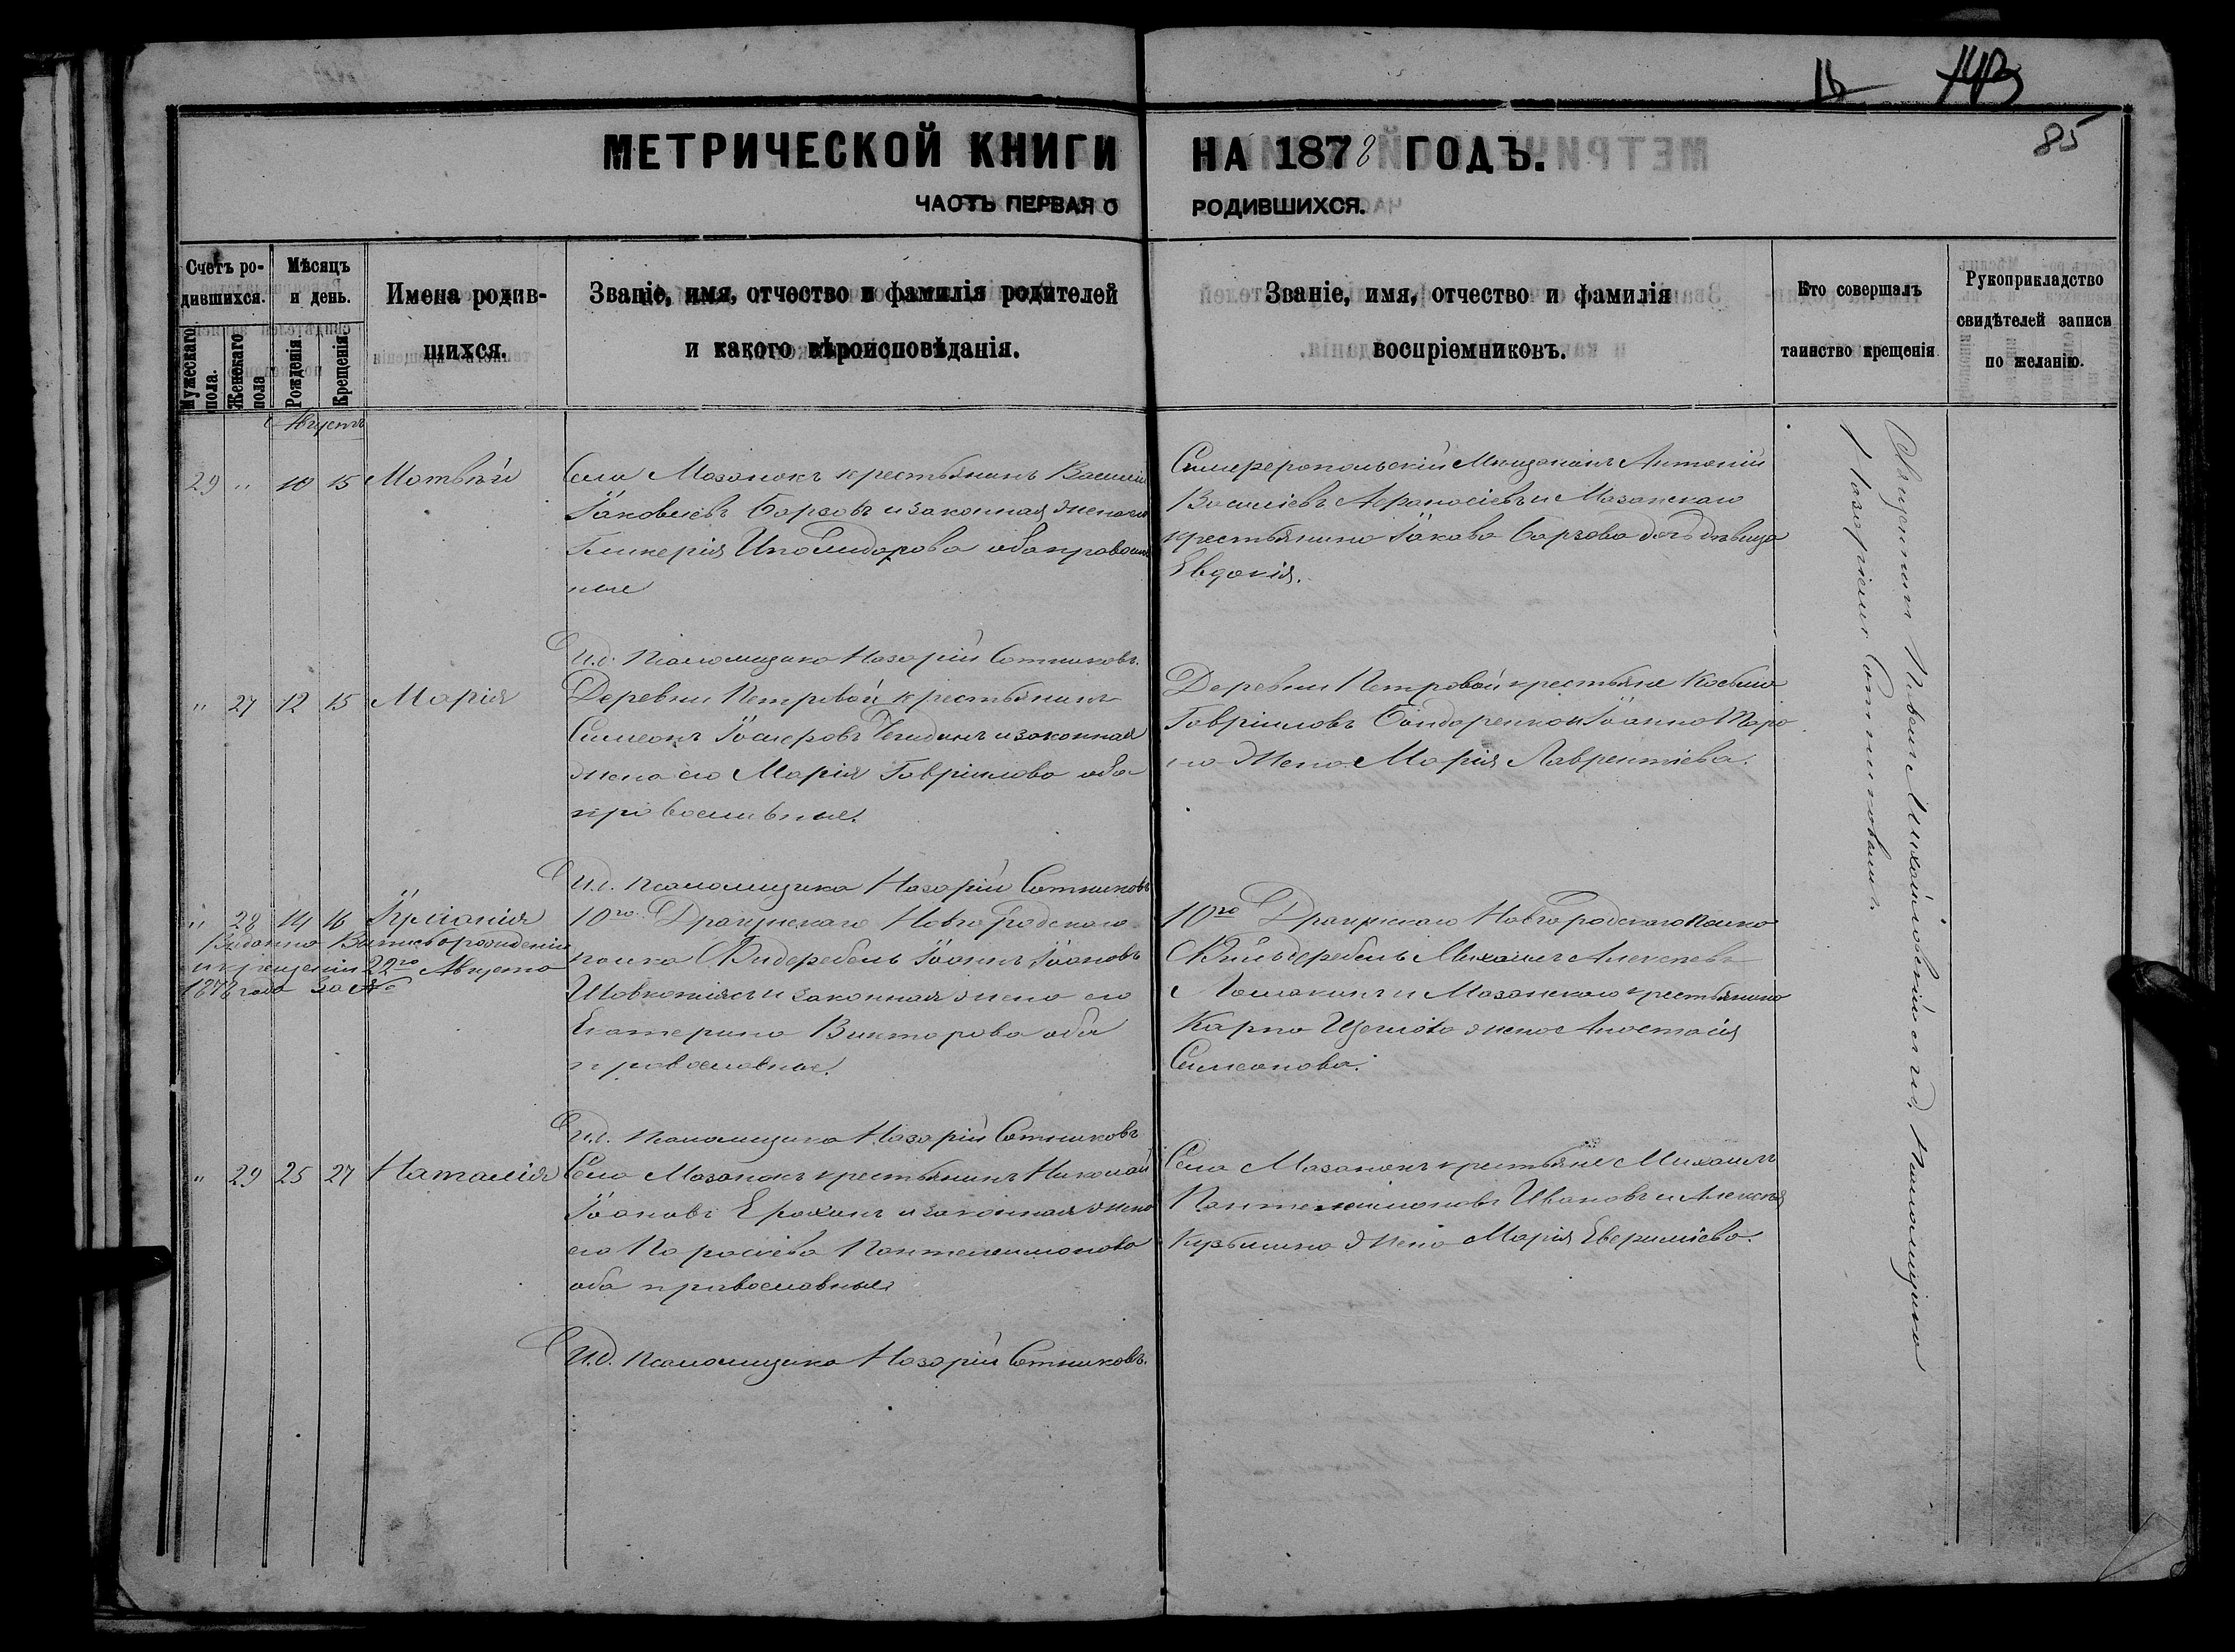 143
85
МЕТРИЧЕСКОЙ КНИГИ НА 1878 ГОДЪ.
ЧАСТЬ ПЕРВАЯ О РОДИВШИХСЯ.
Счетъ ро-
дившихся.
Мужескаго пола.
Женскаго пола
Мѣсяцъ
и день.
Рожденія.
Крещенія.
Имена родив-
шихся.
Званіе, имя, отчество и фамилія родителей
и какого вѣроисповѣданія.
Званіе, имя, отчество и фамилія
воспріемниковъ.
Кто совершалъ
таинство крещенія
Рукоприкладство
свидѣтелей записи
по желанію.
Августъ
29 " 10 15 Матвѣй
Села Мазанокъ крестьянинъ Василій
Іаковлевъ Борзовъ и законная жена его
Гликерія Иполидорова оба православ
ные
Симферопольскій Мищанинъ Антоній
Василіевъ Афанасіевъ и Мазанскаго
крестьянина Іакова Борзова дочь дѣвица
Евдокія.
И.д. Псаломщика Назарій Сотниковъ.
" 27 12 15 Марія
Деревни Петровой крестьянинъ
Симеонъ Іосифовъ и законная
жена его Марія Гавріилова оба
православные.
Деревни Петровой крестьяне Косьма
Гавріиловъ Бондаренко и Іоанна
жена Марія Лаврентіева.
И.д. псаломщика Назарій Сотниковъ
" 28 14 16
Выдано
и крещеніи 22го Августа
1878 года за №
10го Драгунскаго Новгородскаго
полка Іоаннъ Іоановъ
и законная жена его
Екатерина Викторова оба
православные.
10го Драгунскаго Новгородскаго полка
Михаилъ Алексѣевъ
и Мазанскаго крестьянина
Карпа жена Анастасія
Симеонова.
И.д. Псаломщика Назарій Сотниковъ
" 29 25 27 Наталія
Села Мазанокъ крестьянинъ Николай
Іоановъ Ерохинъ и законная жена
его Параскева Пантелеимонова
оба православные
Села Мазанокъ крестьяне Михаилъ
Пантелеимоновъ Ивановъ и Алексѣя
Кузьмина жена Марія
И.д. Псаломщика Назарій Сотниковъ.
Священникъ Михайловскій съ и.д. Псаломщика
Назаріемъ Сотниковымъ.